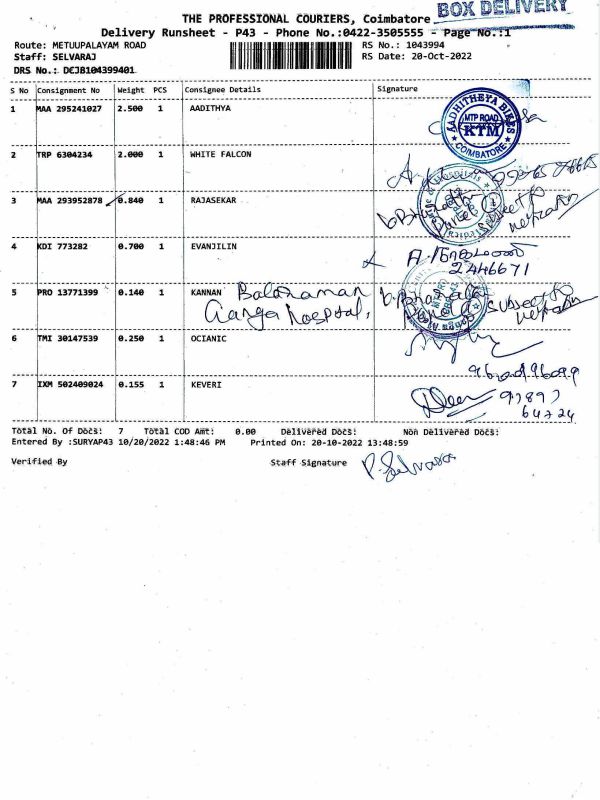 BOX DELIVERY
THE PROFESSIONAL COURIERS, Coimbatore
Delivery Runsheet - P43 - Phone No.:0422-3505555 - Page No.:1
Route: METUUPALAYAM ROAD RS No.: 1043994
Staff: SELVARAJ RS Date: 20-Oct-2022
DRS No.: DCJB104399401
S No Consignment No Weight PCS Consignee Details Signature
1 MAA 295241027 2.500 1 AADITHYA
AADHITHEYA BIKES MTP ROAD KTM COIMBATORE
2 TRP 6304234 2.000 1 WHITE FALCON
3 MAA 293952878 0.840 1 RAJASEKAR
Subject to
4 KDI 773282 0.700 1 EVANJILIN
2446671
5 PRO 13771399 0.140 1 KANNAN
Ganga hospital,
Subject to
6 TMI 30147539 0.250 1 OCIANIC
7 IXM 502409024 0.155 1 KEVERI
Total No. Of Docs: 7 Total COD Amt: 0.00 Delivered Docs: Non Delivered Docs:
Entered By :SURYAP43 10/20/2022 1:48:46 PM Printed On: 20-10-2022 13:48:59
Verified By Staff Signature P. Selvaraj